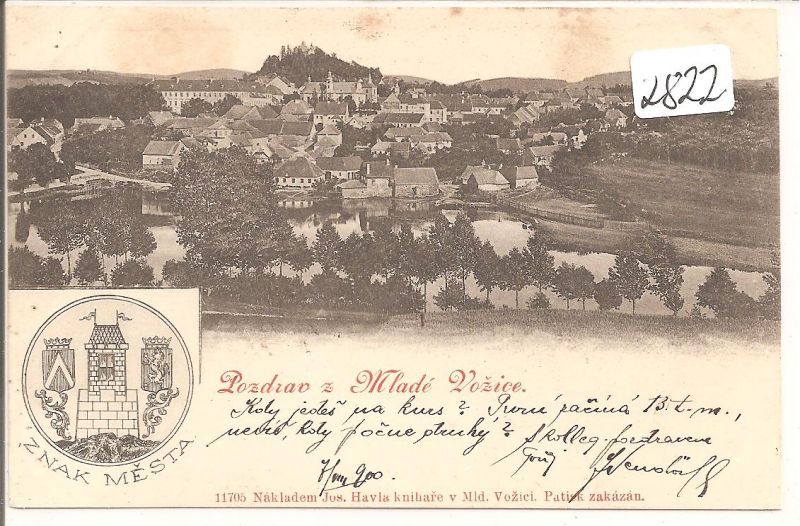 2822
Pozdrav z Mladé Vožice.
Kdy jedeš na kurs? První začíná 13. t. m.,
nevíš, kdy počne druhý? S kolleg. pozdravem
Tvůj
900
ZNAK MĚSTA
11705 Nákladem Jos. Havla knihaře v Mld. Vožici. Patisk zakázán.